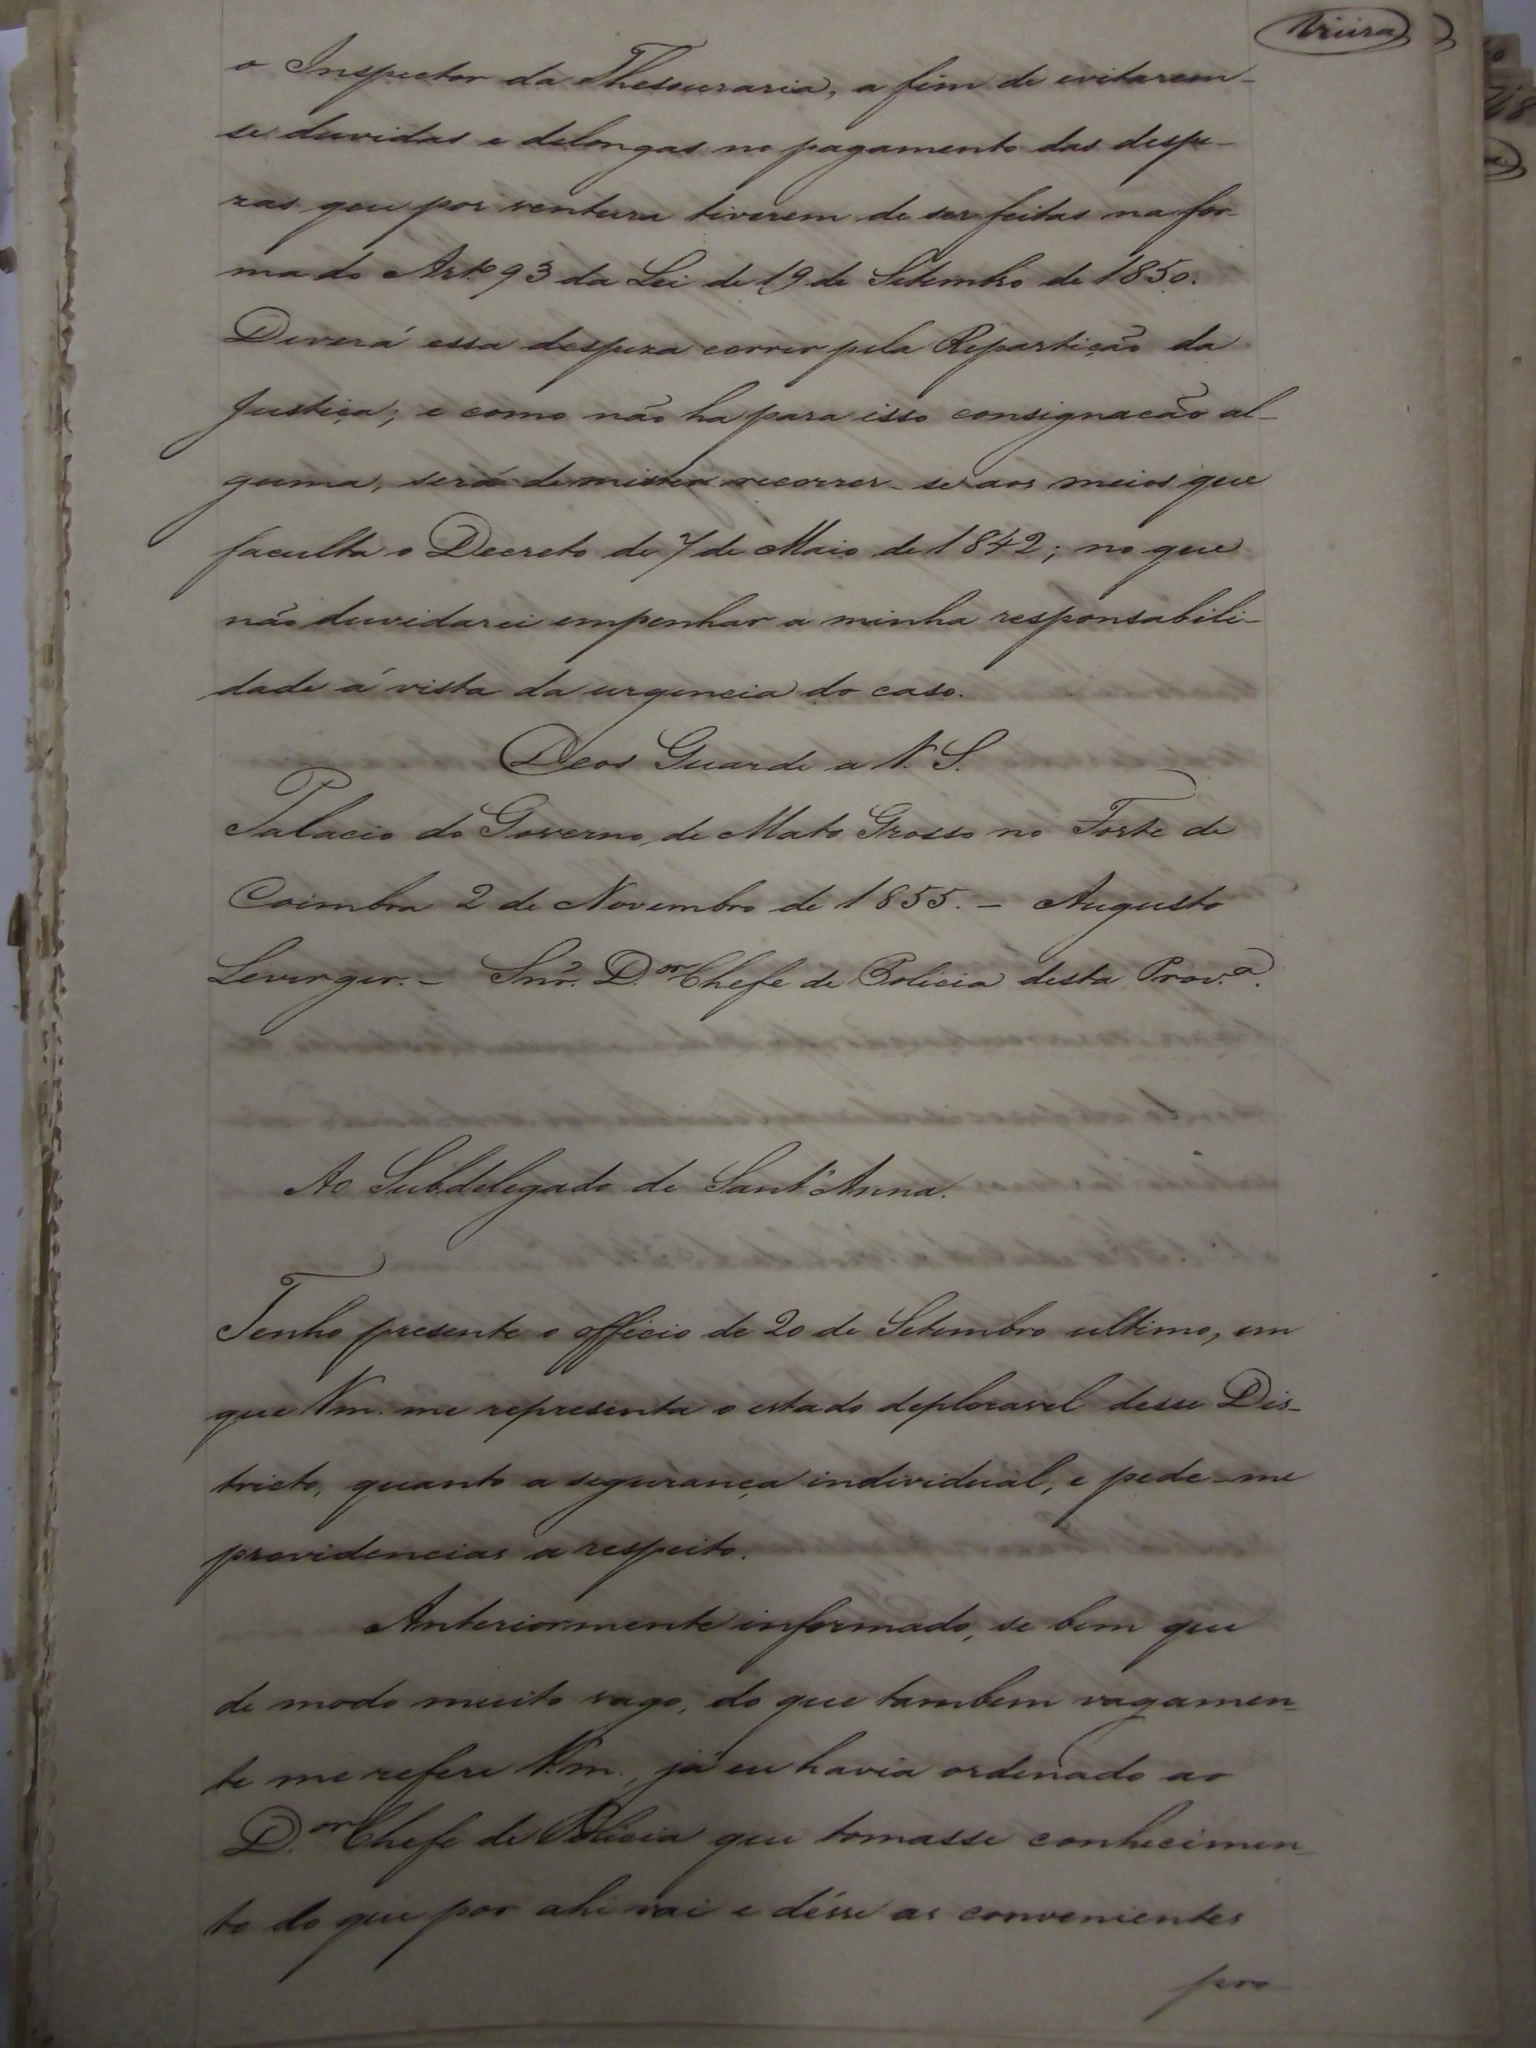 Vieira
o Inspector da Thesouraria, a fim de evitarem-
se duvidas e delongas no pagamento das despe-
zas que por ventura tiverem de ser feitas na for-
ma do Art.º 93 da Lei de 19 de Setembro de 1850.
Deverá essa despeza correr pela Repartição da
Justiça; e como não ha para isso consignação al-
guma, será de mister recorrer-se aos meios que
faculta o Decreto de 7 de Maio de 1842; no que
não duvidarei empenhar a minha responsabili-
dade á vista da urgencia do caso.
Deos Guarde a V. S.
Palacio do Governo de Mato Grosso no Forte de
Coimbra 2 de Novembro de 1855. – Augusto
Leverger. – Snr. D.or Chefe de Policia desta Prov.a.
Ao Subdelegado de Sant'Anna.
Tenho presente o officio de 20 de Setembro ultimo, em
que Vm. me representa o estado deploravel desse Dis-
tricto, quanto a segurança individual, e pede-me
providencias a respeito.
Anteriormente informado, se bem que
de modo muito vago, do que tambem vagamen-
te me refere V.m., já eu havia ordenado ao
D.or Chefe de Policia que tomasse conhecimen-
to do que por ahi vai e désse as convenientes
pro